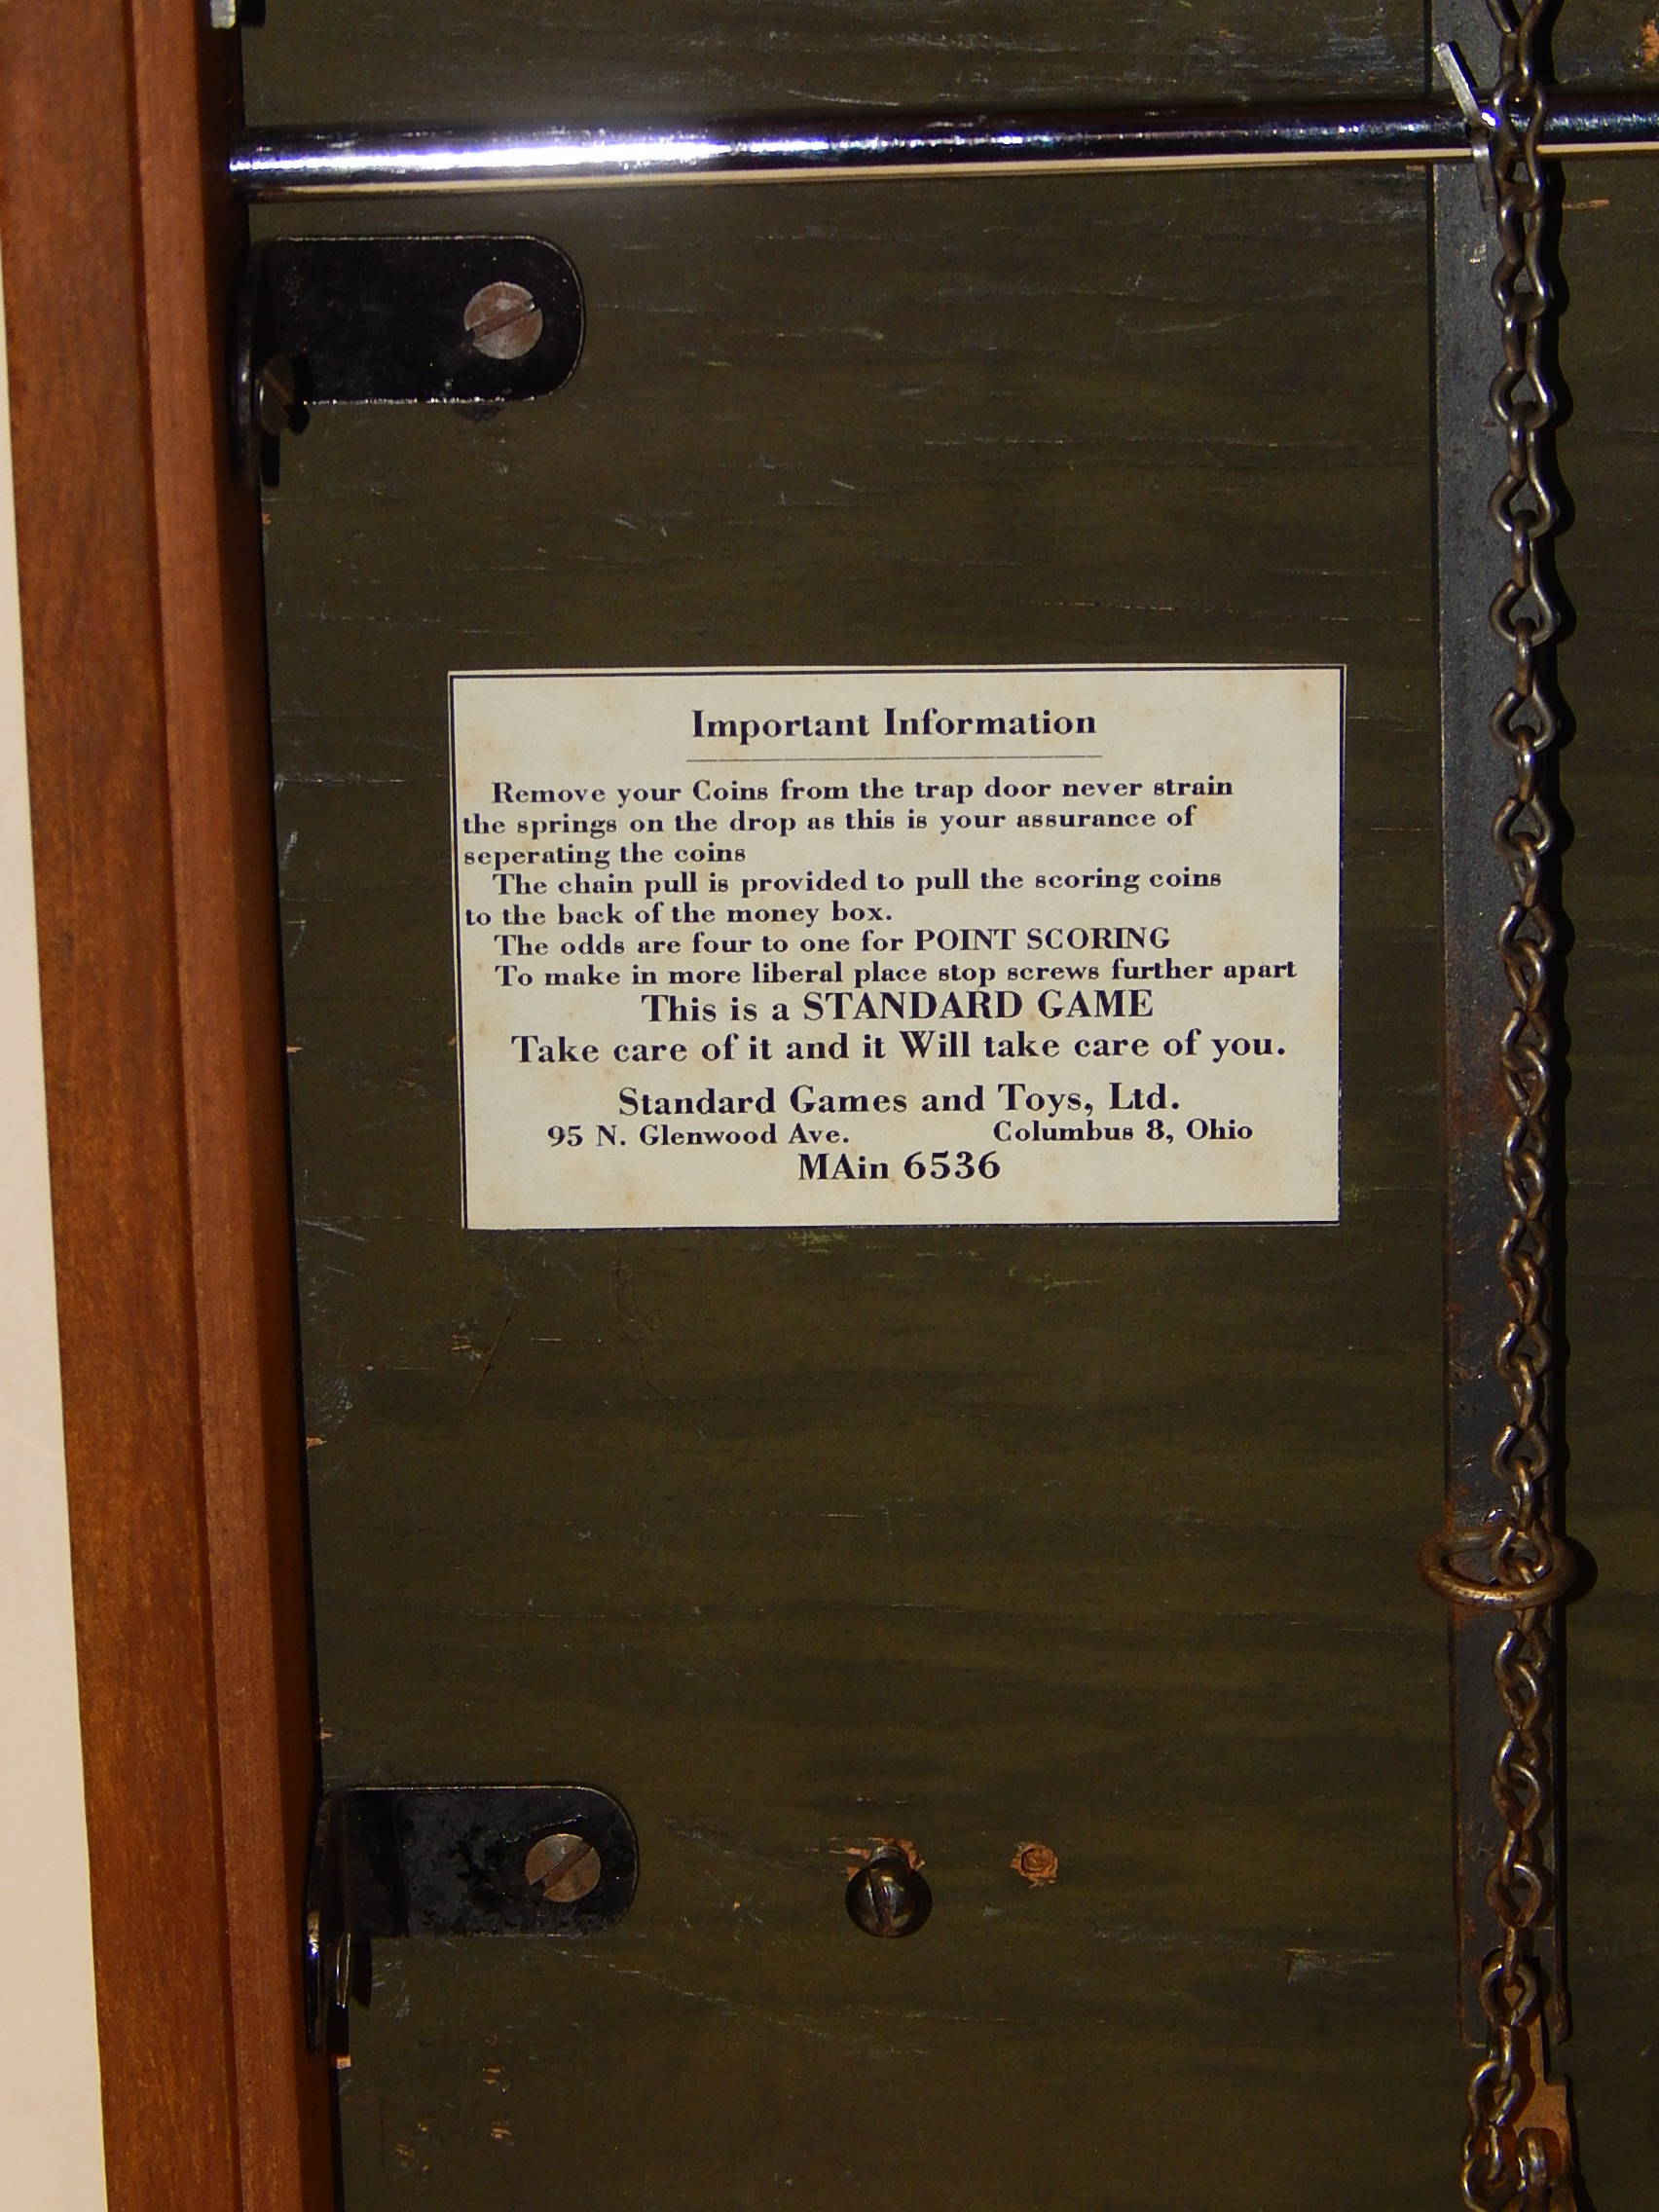 Important Information
Remove your Coins from the trap door never strain
the springs on the drop as this is your assurance of
seperating the coins
The chain pull is provided to pull the scoring coins
to the back of the money box.
The odds are four to one for POINT SCORING
To make in more liberal place stop screws further apart
This is a STANDARD GAME
Take care of it and it Will take care of you.
Standard Games and Toys, Ltd.
95 N. Glenwood Ave. Columbus 8, Ohio
MAin 6536